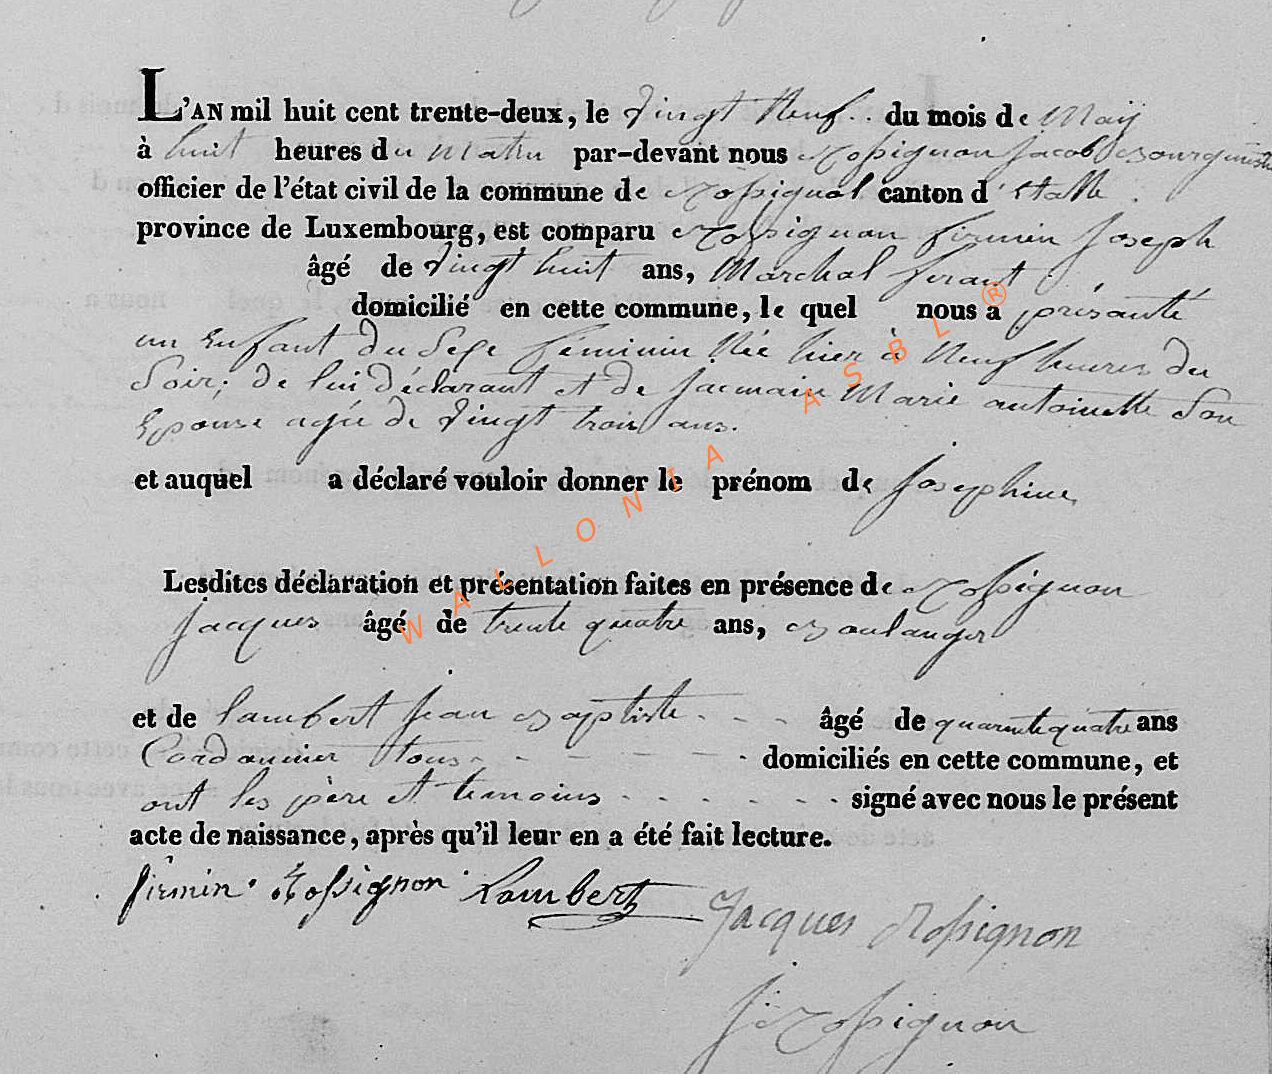 L'AN mil huit cent trente-deux, le vingt Neuf du mois de Maÿ
à huit heures du matin par-devant nous Rossignon Jacob Bourgmestre
officier de l'état civil de la commune de Rossignol canton d'Etalle
province de Luxembourg, est comparu Rossignon firmin Joseph
âgé de vingt huit ans, Marchal ferant
domicilié en cette commune, le quel nous a présanté
un Enfant du Sexe féminin Née hier à Neuf heures du
Soir; de lui déclarant et de Jacmain Marie antoinette Son
Epouse agée de vingt trois ans.
et auquel a déclaré vouloir donner le prénom de Josephine
Lesdites déclaration et présentation faites en présence de Rossignon
Jacques âgé de trente quatre ans, Boulanger
et de Lambert Jean Baptiste - - - âgé de quarente quatre ans
Cordonnier tous - - - - - domiciliés en cette commune, et
ont les père et temoins - - - - - - signé avec nous le présent
acte de naissance, après qu'il leur en a été fait lecture.
firmin Rossignon Lambert Jacques Rossignon
J Rossignon
WALLONIA ASBL ®